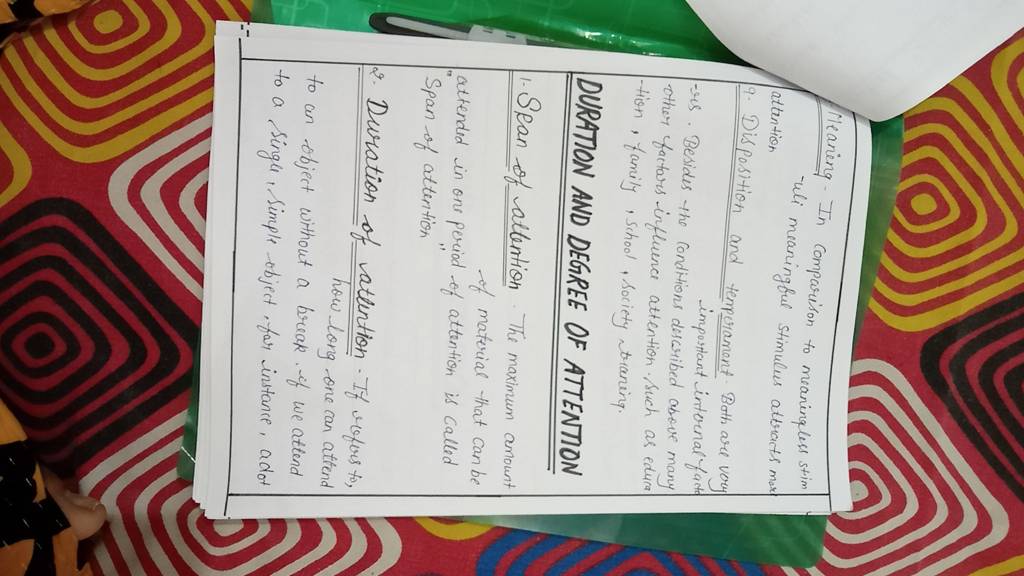 Meaning - In comparison to meaningless stim
-uli meaningful stimulus attracts more
attention
9. Disposition and temprament - Both are very
important internal fact
-us. Besides the conditions described above many
other factors influence attention such as educa
-tion, family, school, society, training.
DURATION AND DEGREE OF ATTENTION
1. Span of attention - The maximum amount
of material that can be
attended in one period of attention is called
"Span of attention"
2. Duration of attention - It refers to,
how long one can attend
to an object without a break. If we attend
to a single, simple object, for instance, a dot